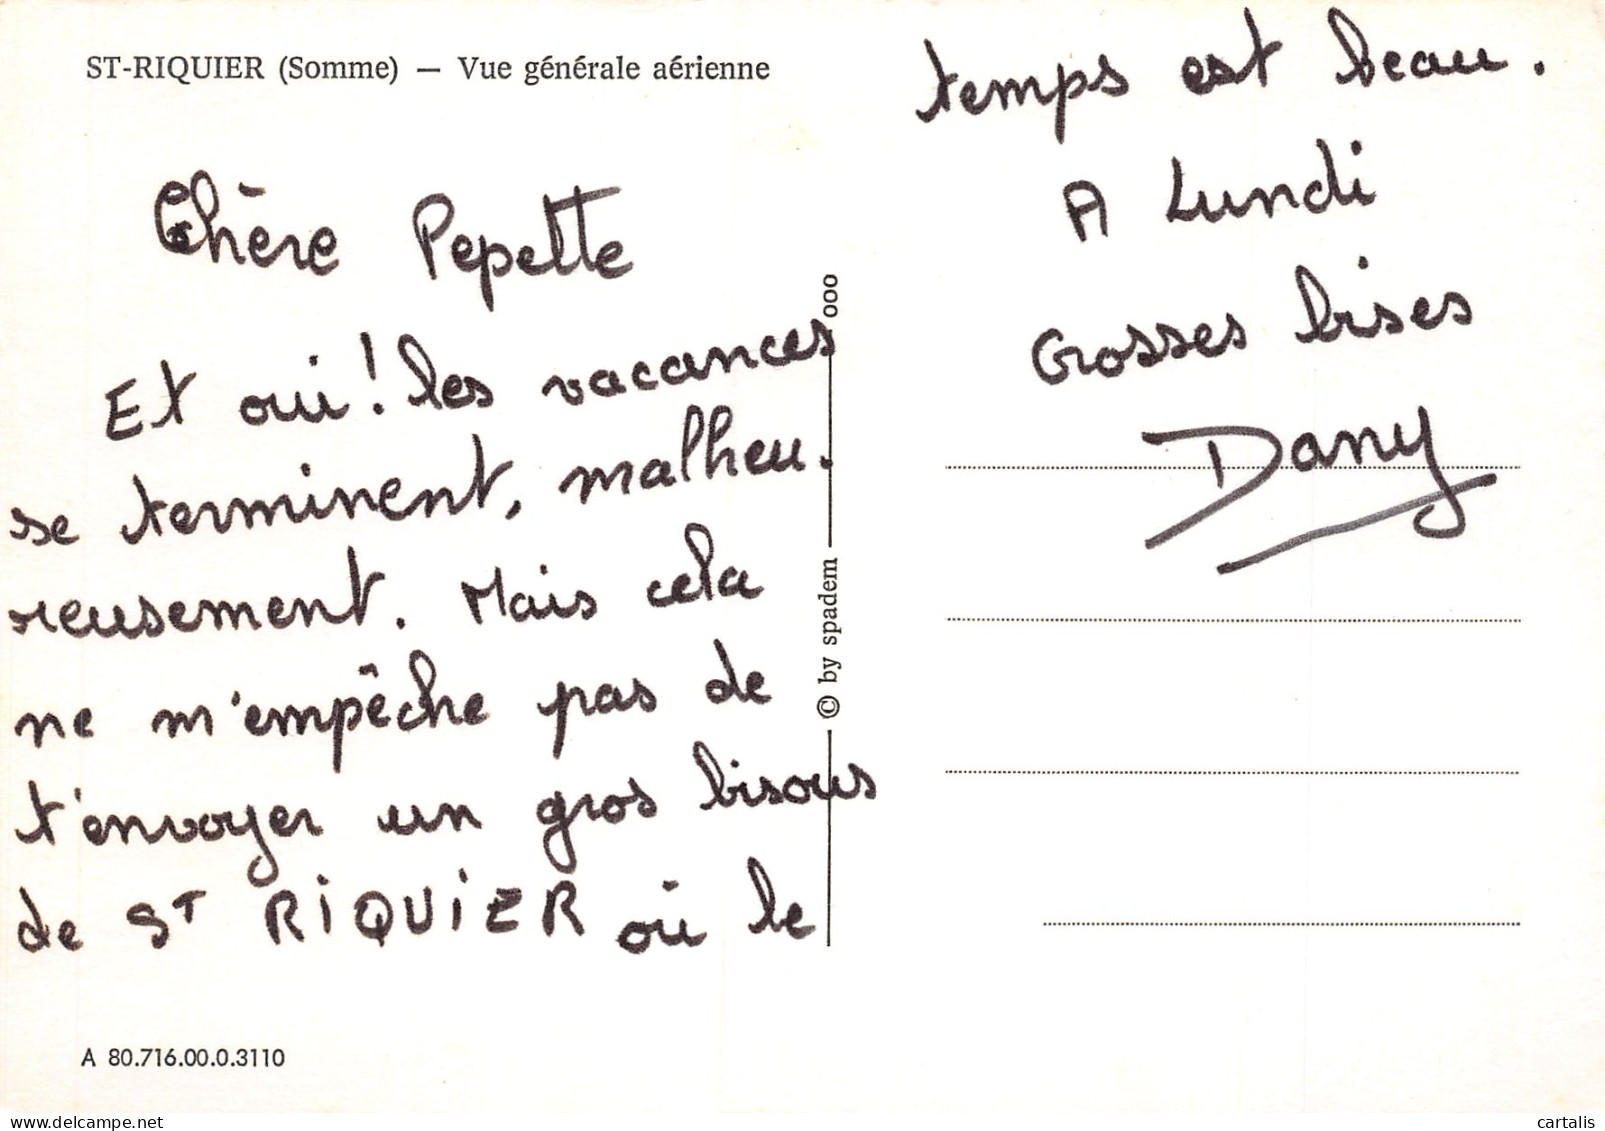 ST-RIQUIER (Somme) — Vue générale aérienne
Chère Pepette
Et oui! les vacances
se terminent, malheu.
reusement. Mais cela
ne m'empêche pas de
t'envoyer un gros bisous
de ST RIQUIER où le
temps est beau.
A Lundi
Grosses bises
Dany
© by spadem
000
A 80.716.00.0.3110
cartalis